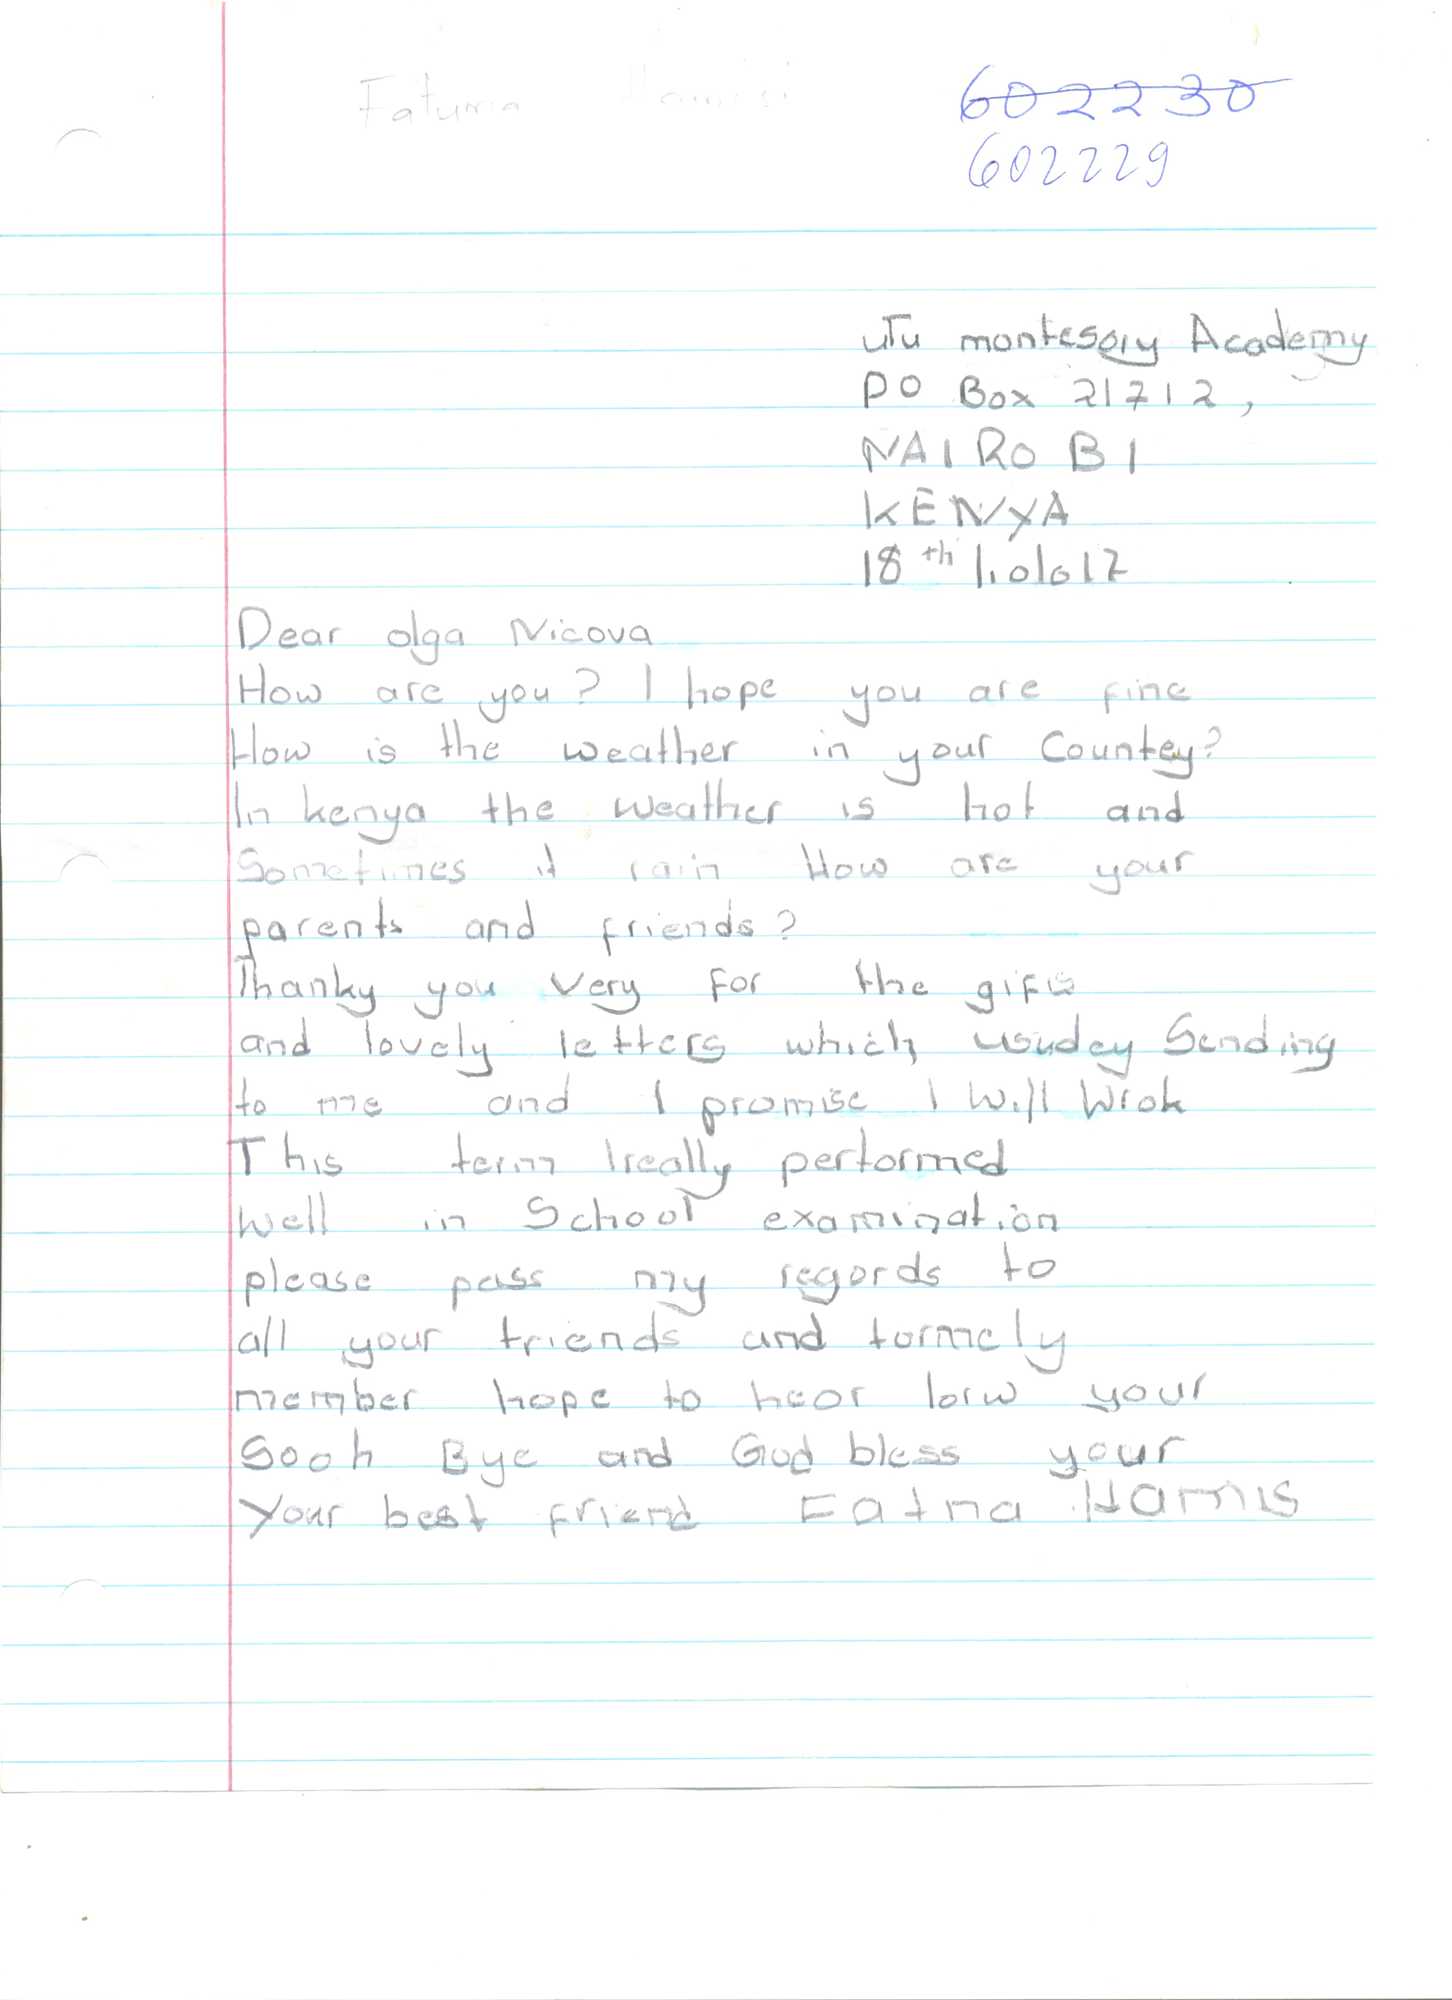 Fatuma Hamisi
602230
602229
uTu montesory Academy
PO Box 21712,
NAIROBI
KENYA
18th
Dear olga Nicova
How are you? I hope you are fine
How is the weather in your Country?
In kenya the weather is hot and
Sometimes it rain How are your
parents and friends?
Thanky you very for the gifts
and lovely letters which Sending
to me and I promise I will Wrok
This term I really performed
well in School examination
please pass my regords to
all your friends and
member hope to heor your
Sooh Bye and God bless your
Your best friend Fatna Hamis